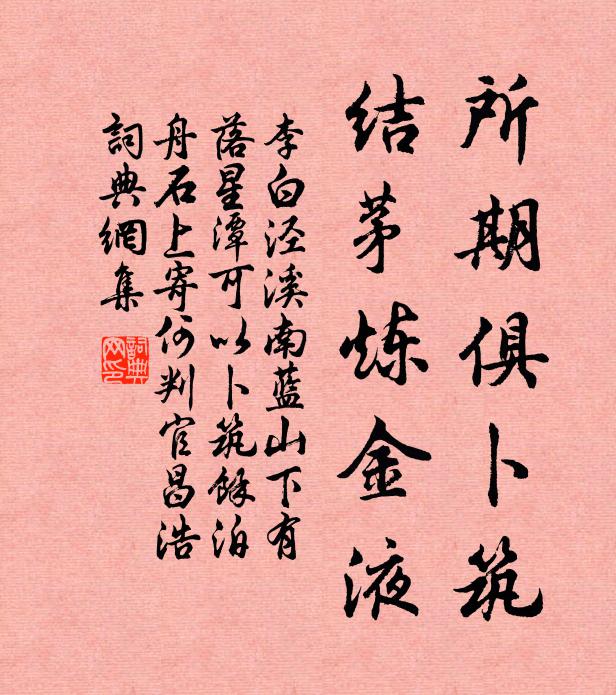 所期俱卜筑
结茅炼金液
李白泾溪南蓝山下有
落星潭可以卜筑馀泊
舟石上寄何判官昌浩
詞典網集
詞典網印